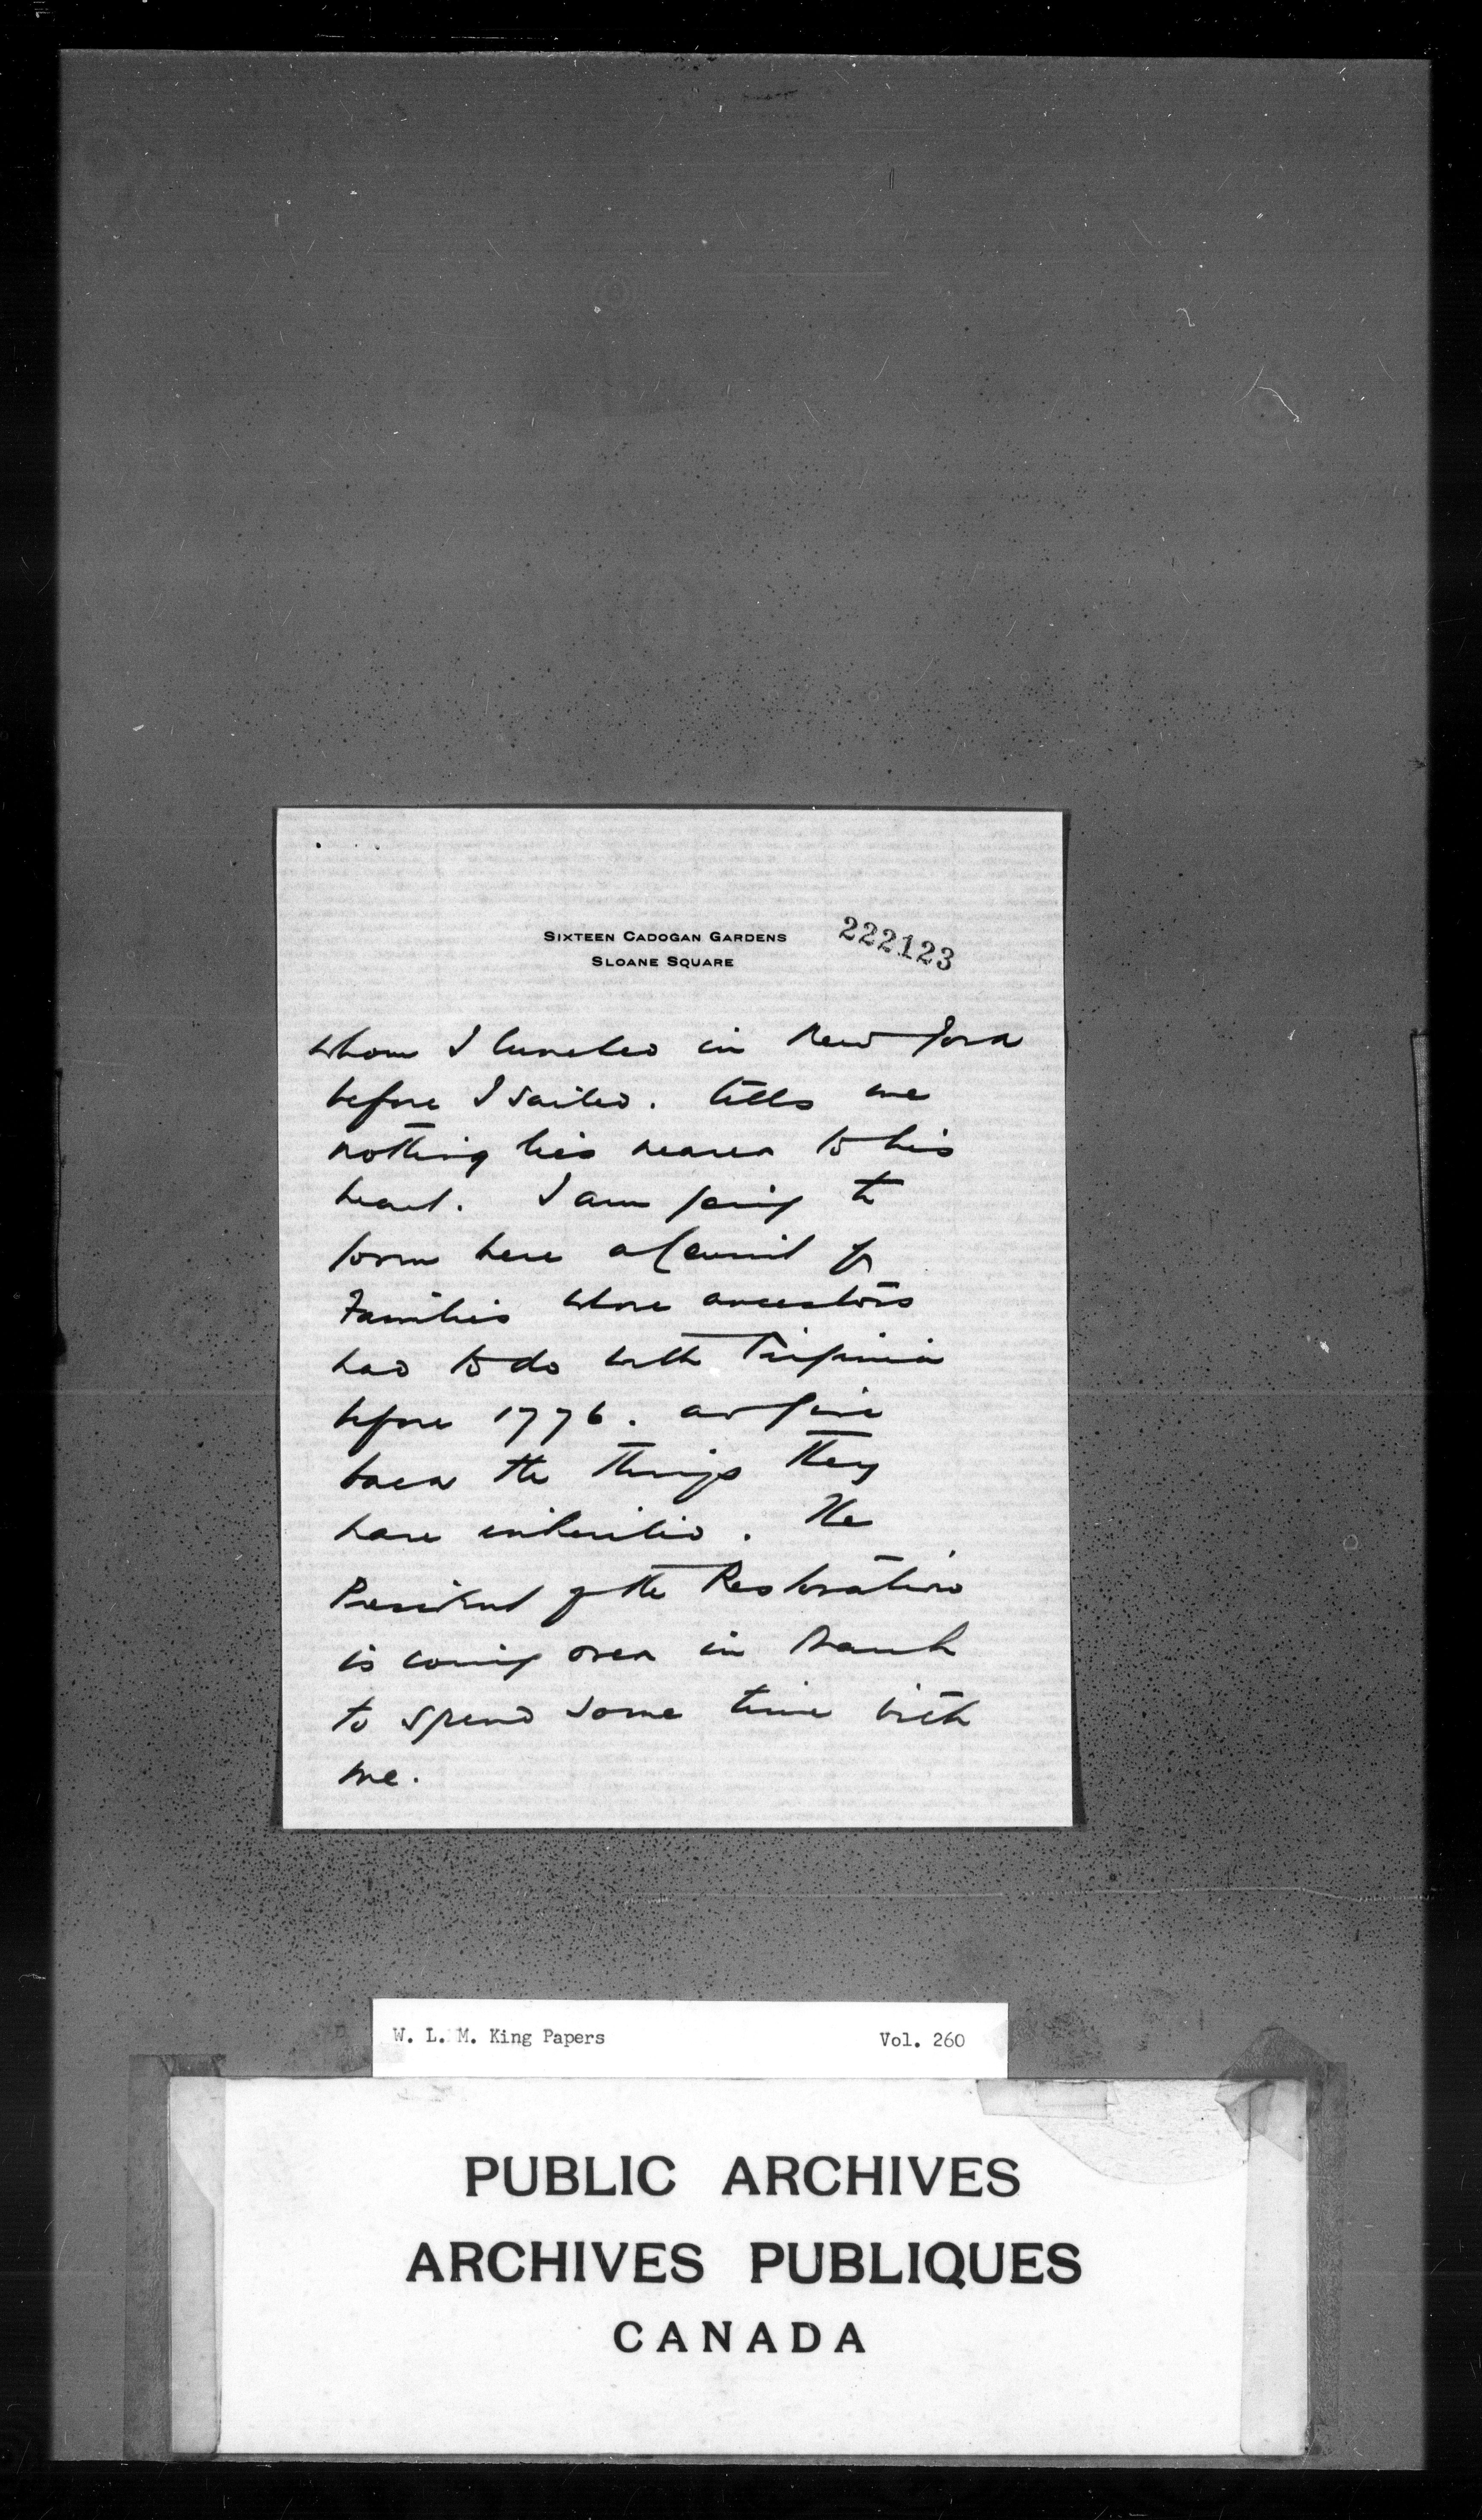 SIXTEEN CADOGAN GARDENS
SLOANE SQUARE
222123
whom I lunched in New York
before I sailed. tells me
nothing lies nearer to his
heart. I am going to
form here a Council of
Families whose ancestors
had to do with Virginia
before 1776. and give
back the things they
have inherited. The
President of the Restoration
is coming over in March
to spend some time with
me.
W. L. M. King Papers Vol. 260
PUBLIC ARCHIVES
ARCHIVES PUBLIQUES
CANADA